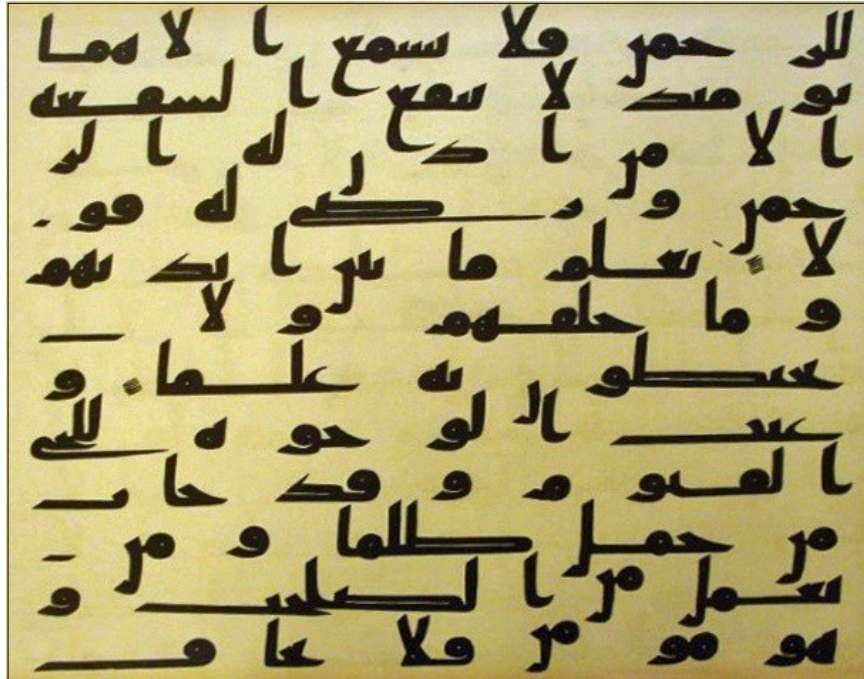 للرحمن فلا تسمع الا همسا
يومئذ لا تنفع الشفعه
الا من اذن له الر
حمن ورضى له قو
لا يعلم ما بين ايديهم
وما خلفهم ولا
يحيطون به علما و
عنت الوجوه للحى
القيوم وقد خاب
من حمل ظلما ومن
يعمل من الصلحت و
هو مومن فلا يخاف